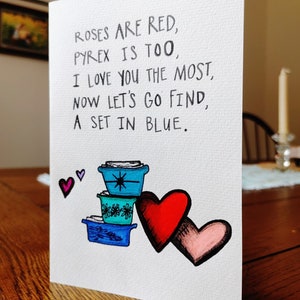 ROSES ARE RED,
PYREX IS TOO,
I LOVE YOU THE MOST,
NOW LET'S GO FIND,
A SET IN BLUE.